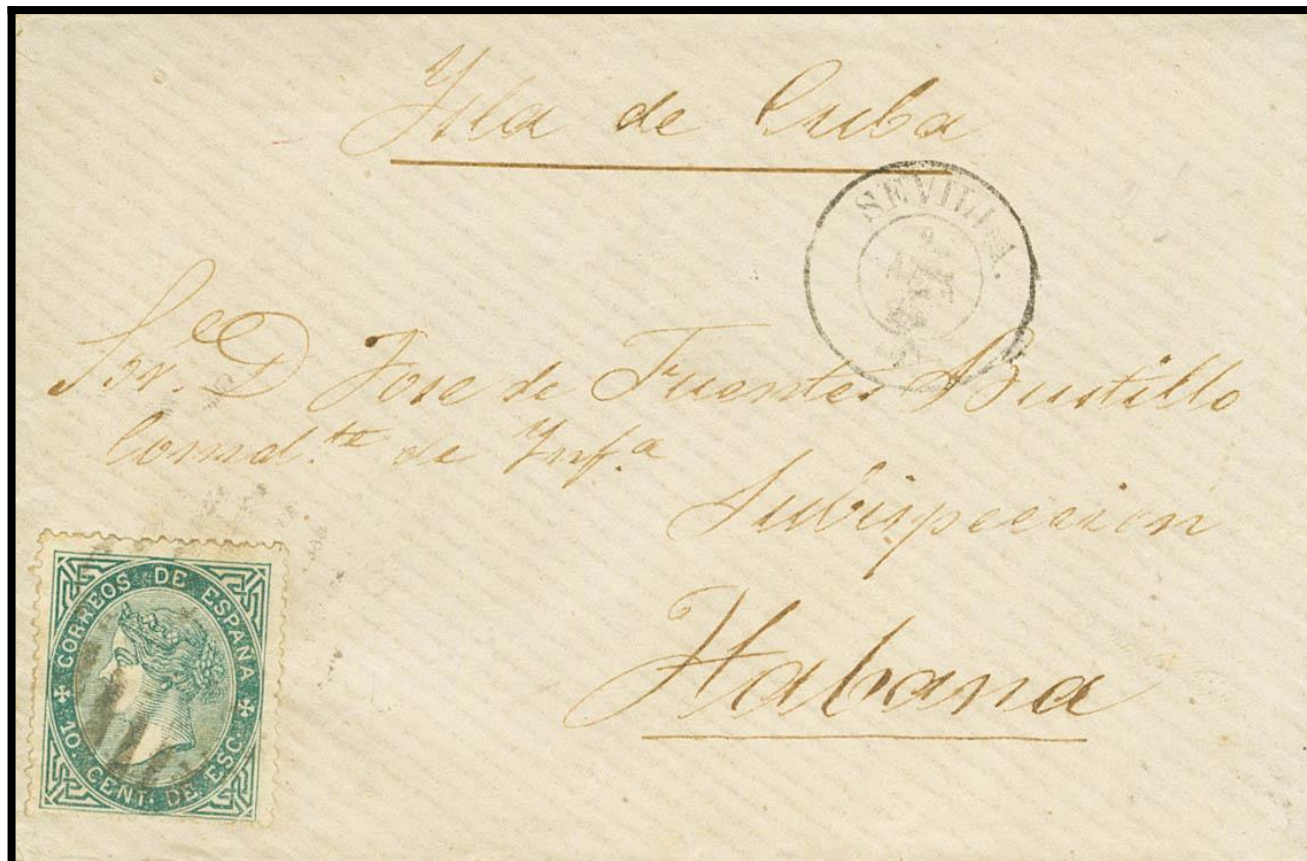 Ysla de Cuba
SEVILLA.
Sor. D. Jose de Fuentes Bustillo
Comd.te de Ynf.a
Subispeccion
Habana
CORREOS DE ESPAÑA
10. CENT. DE ESC.